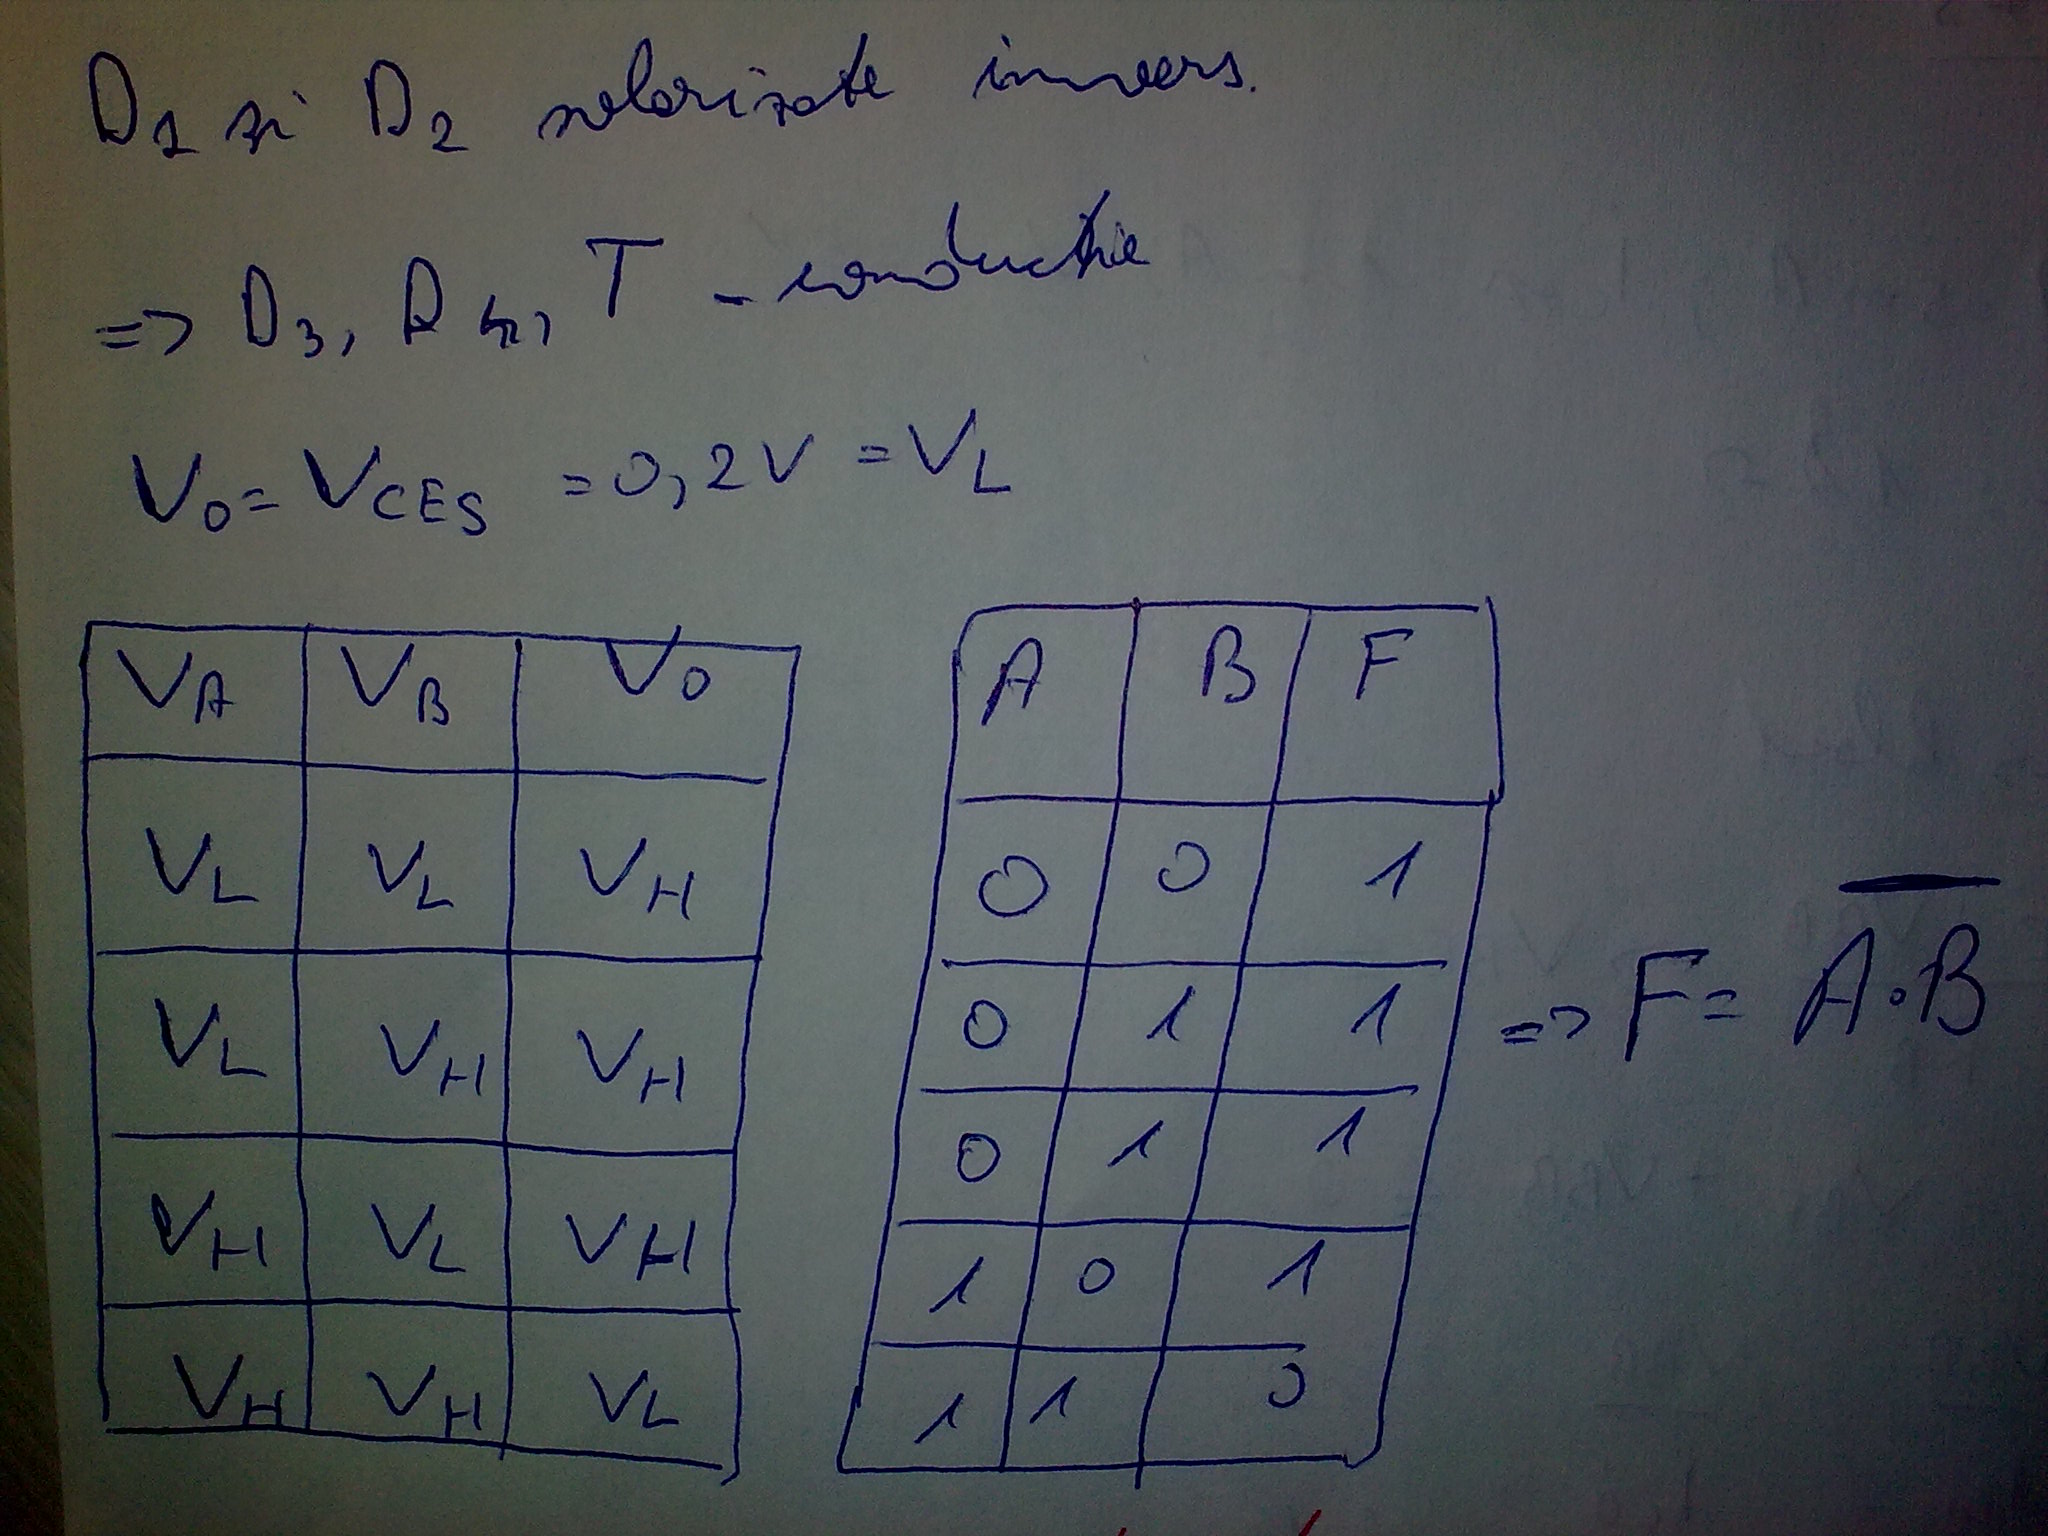 D1 si D2 polarizate invers.
=> D3, D4, T - conductie
V0 = VCES = 0,2V = VL
VA VB V0
VL VL VH
VL VH VH
VH VL VH
VH VH VL
A B F
0 0 1
0 1 1
0 1 1
1 0 1
1 1 0
=> F = \overline{A·B}